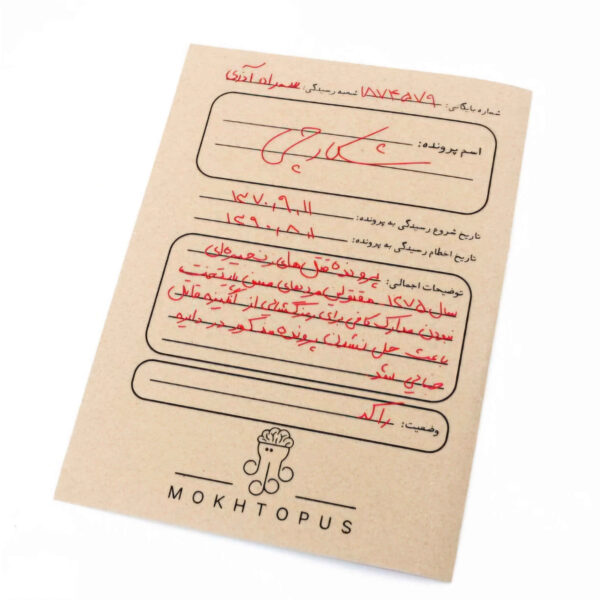 شماره بایگانی: ۱۸۷۴۵۷۹ شعبه رسیدگی: مهراد آذری
اسم پرونده:
شکارچی
تاریخ شروع رسیدگی به پرونده: ۱۳۷۰,۹,۱۱
تاریخ اختام رسیدگی به پرونده: ۱۳۹۰,۸,۱۱
توضیحات اجمالی: پرونده قتل‌های زنجیره‌ای
سال ۱۲۷۵ مقتولین مردهای مسن پایتخت
نبودن مدارک کافی برای رنگشایی از انگیزه قاتل
باعث حل نشدن پرونده مذکور در دایره
جنایی شد
وضعیت: راکد
MOKHTOPUS